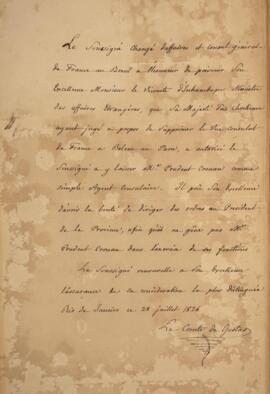 Le Soussigné Chargé d'affaires et consul général
de France au Brésil a l'honneur de prévenir Son
Excellence Monsieur le Vicomte d'Inhambupe Ministre
des affaires étrangères, que Sa Majesté Très chrétienne
ayant jugé à propos de supprimer le Vice consulat
de France à Belem au Para, a autorisé le
Soussigné a y laisser Mr. Prudent comme
simple Agent Consulaire. Il prie Son Excellence
d'avoir la bonté de diriger des ordres au Président
de la Province, afin qu'il ne gêne pas Mr.
Prudent dans l'exercice de ses fonctions
Le Soussigné renouvelle a Son Excellence
l'assurance de sa considération la plus distinguée
Rio de Janeiro ce 28 juillet 1826
Le Comte de Gestas